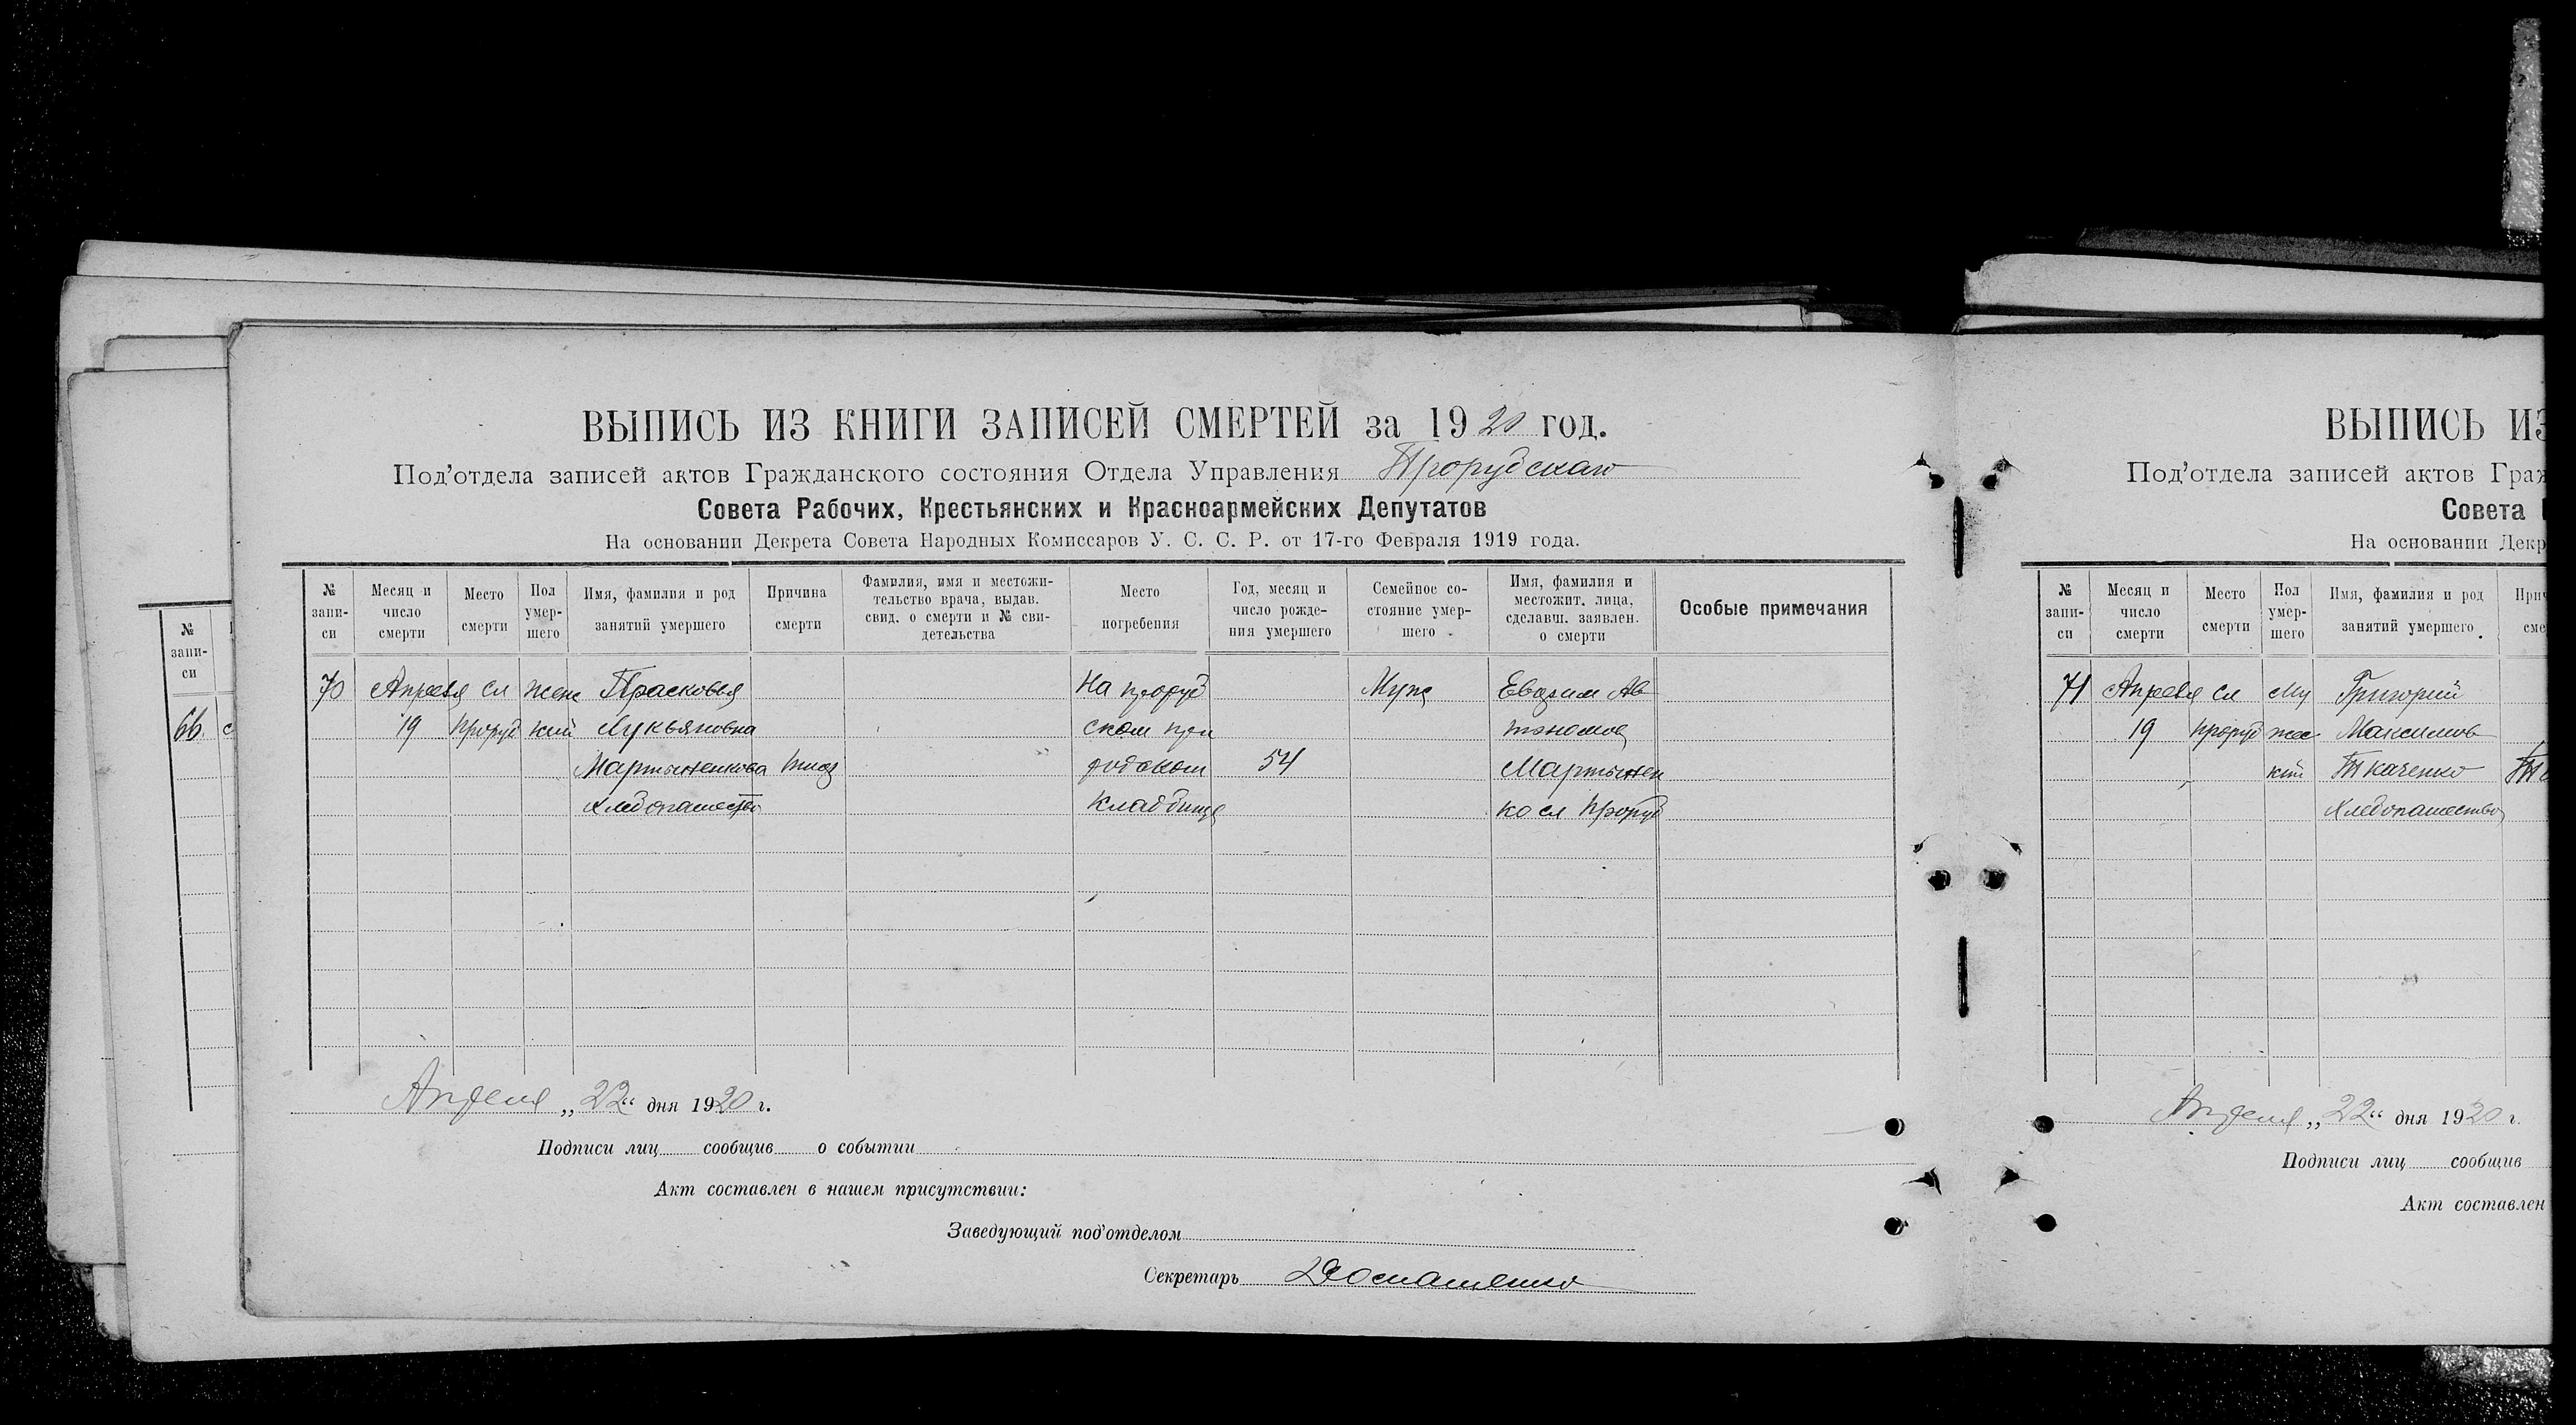 ВЫПИСЬ ИЗ КНИГИ ЗАПИСЕЙ СМЕРТЕЙ за 1920 год.
Под’отдела записей актов Гражданского состояния Отдела Управления Прорубскаго
Совета Рабочих, Крестьянских и Красноармейских Депутатов
На основании Декрета Совета Народных Комиссаров У. С. С. Р. от 17-го Февраля 1919 года.
№ запи-си
Месяц и число смерти
Место смерти
Пол умер-шего
Имя, фамилия и род занятий умершего
Причина смерти
Фамилия, имя и местожи-тельство врача, выдав. свид. о смерти и № сви-детельства
Место погребения
Год, месяц и число рожде-ния умершего
Семейное со-стояние умер-шего
Имя, фамилия и местожит. лица, сделавш. заявлен. о смерти
Особые примечания
70 Апреля сл женс Прасковья На проруб Муж Ав
19 Проруб кий Лукьяновна ском при
Мартыненкова тиф 54 Мартынен
Хлебопашество Кладбище ко сл Проруб
Апреля „22“ дня 1920 г.
Подписи лиц сообщив о событии
Акт составлен в нашем присутствии:
Заведующий под’отделом
Секретарь
№ запи-си
66.
ВЫПИСЬ ИЗ
Под’отдела записей актов Граж
Совета
На основании Декр
№ запи-си
Месяц и число смерти
Место смерти
Пол умер-шего
Имя, фамилия и род занятий умершего
71 Апреля сл му Григорий
19 Проруб жес Максимов
кий Ткаченко
Хлебопашество
Апреля „22“ дня 1920 г.
Подписи лиц сообщив
Акт составлен